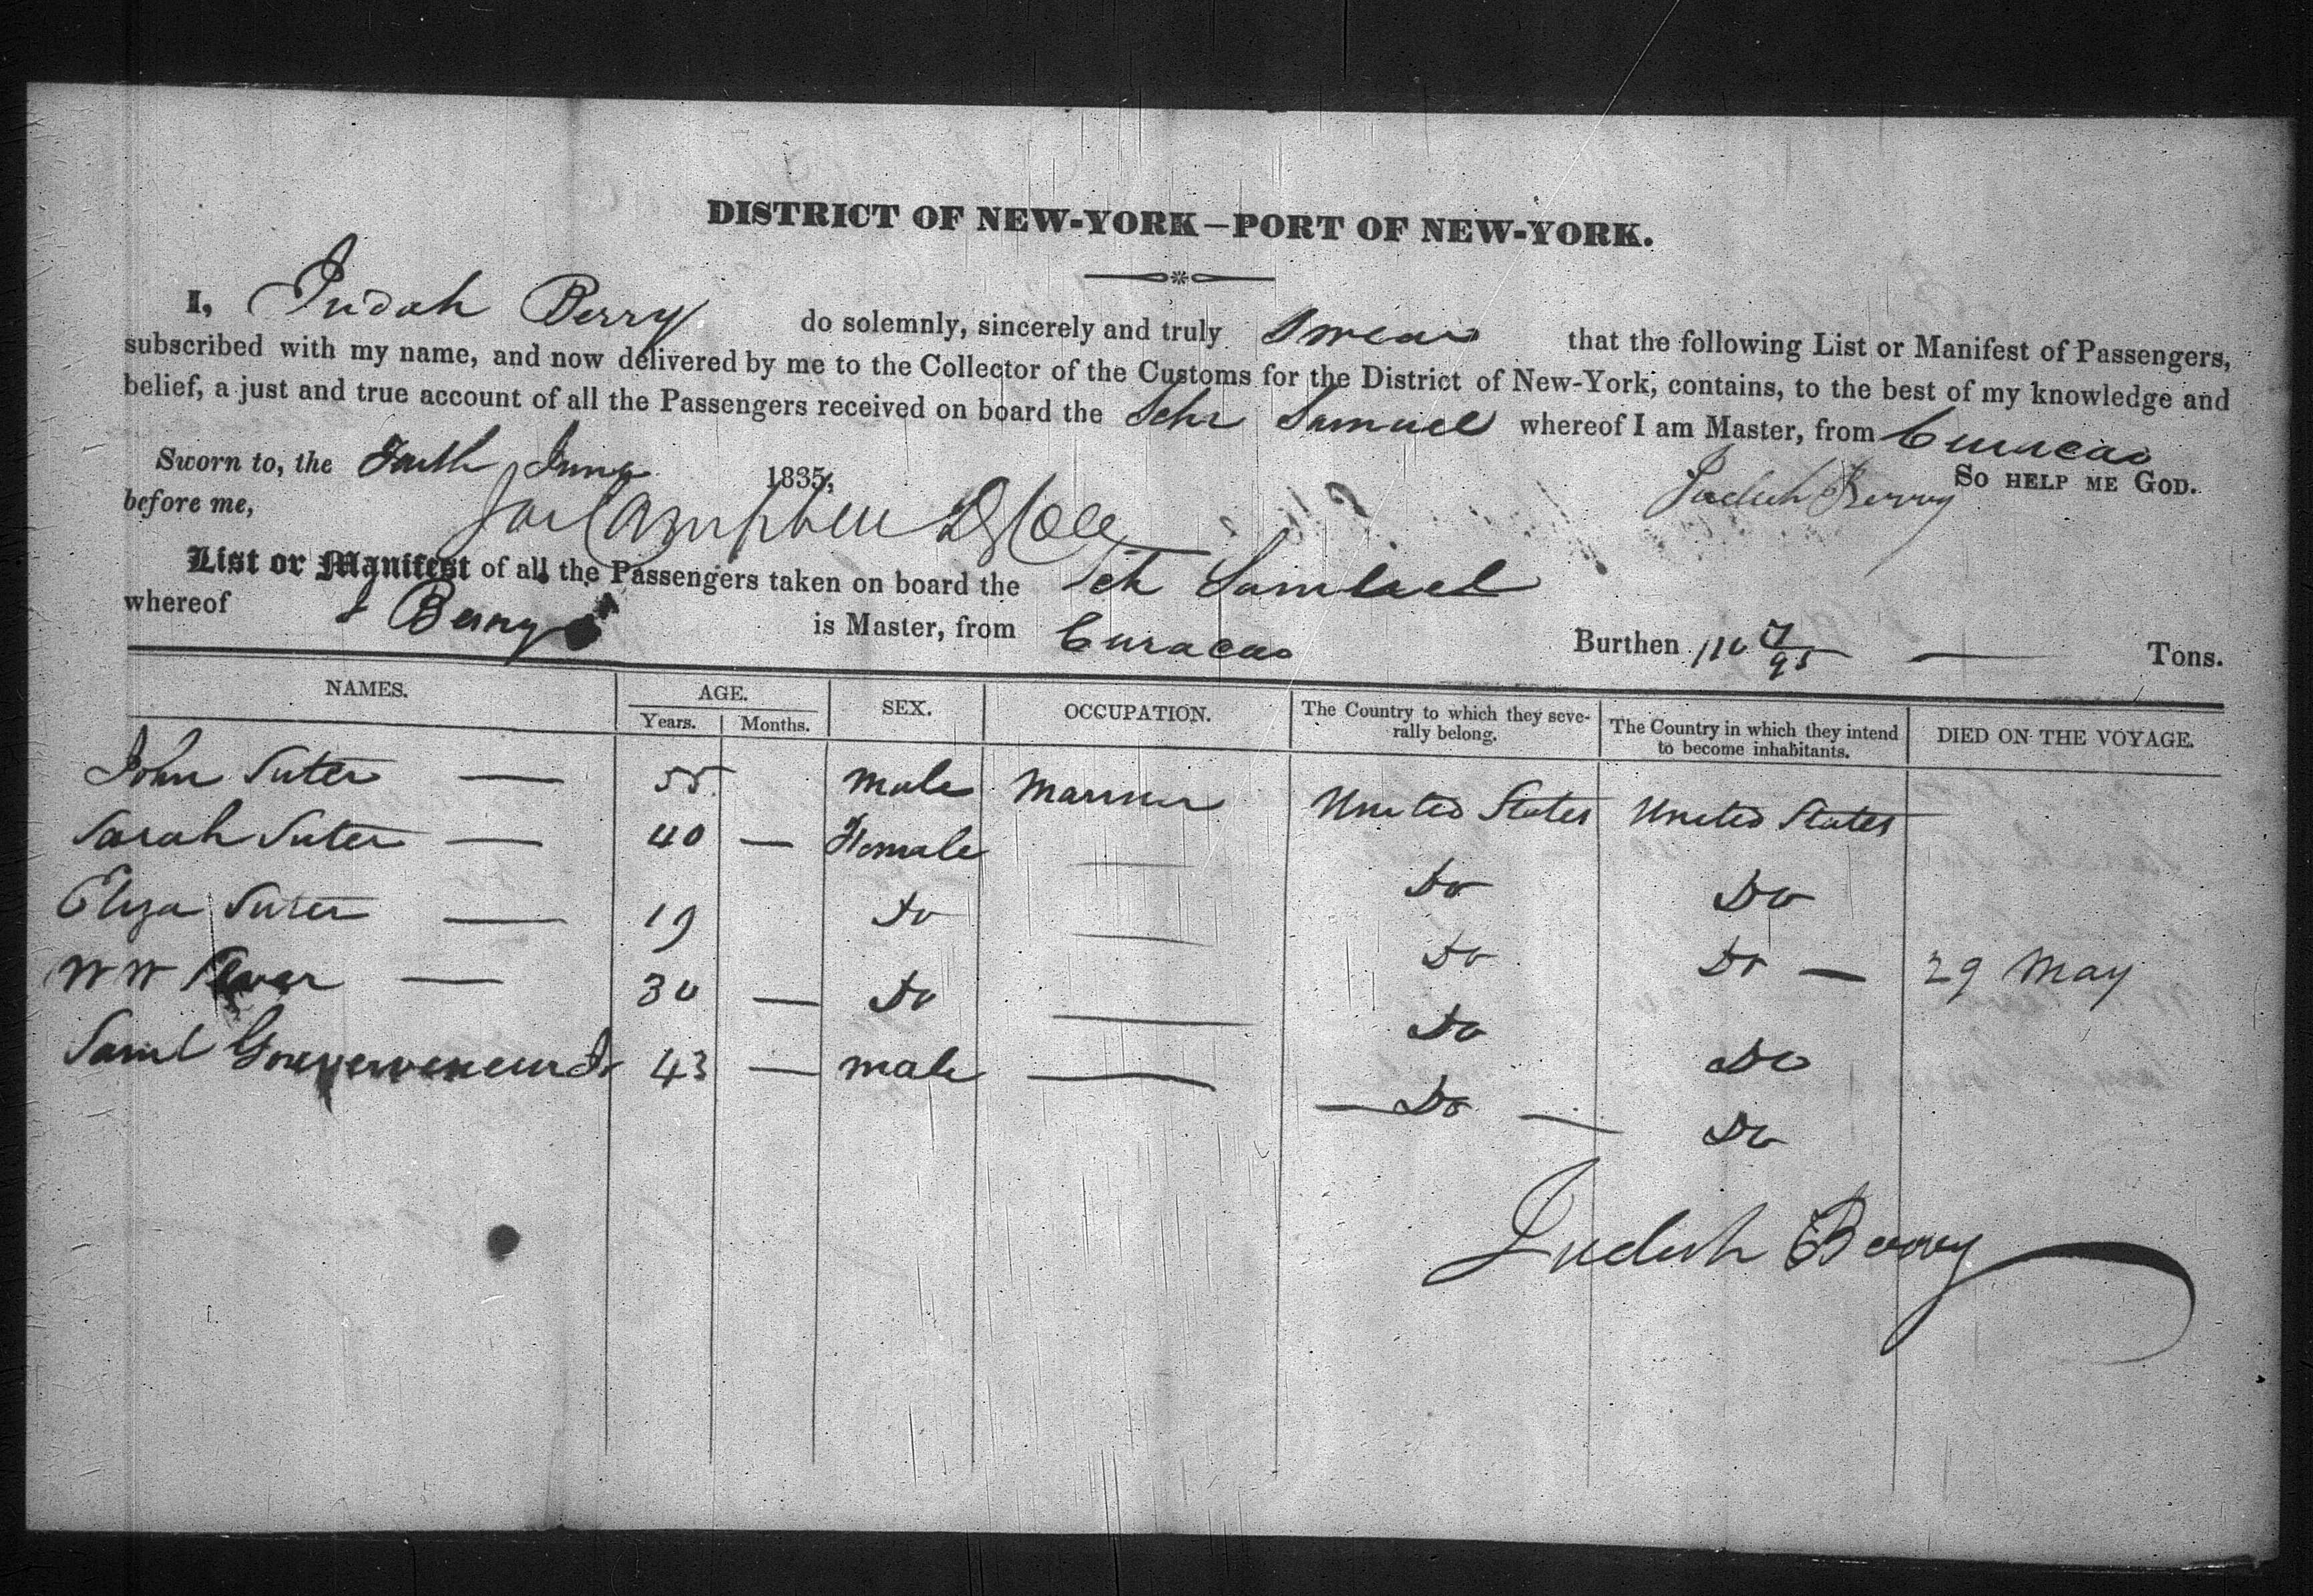 DISTRICT OF NEW-YORK—PORT OF NEW-YORK.
I, Judah Berry do solemnly, sincerely and truly swear that the following List or Manifest of Passengers,
subscribed with my name, and now delivered by me to the Collector of the Customs for the District of New-York, contains, to the best of my knowledge and
belief, a just and true account of all the Passengers received on board the Schr Samuel whereof I am Master, from Curacao
Sworn to, the June 1835, Judah Berry So HELP ME GOD.
before me, Campbell
List or Manifest of all the Passengers taken on board the Sch Samuel
whereof J Berry is Master, from Curacao Burthen 110 /95 — Tons.
NAMES. AGE. SEX. OCCUPATION. The Country to which they seve-rally belong. The Country in which they intend to become inhabitants. DIED ON THE VOYAGE.
Years. Months.
John Suter — 55 male Mariner United States United States
Sarah Suter — 40 — Female — Do Do
Eliza Suter — 19 Do — Do Do — 29 May
W W — 30 — Do — Do Do
Saml 43 — male — — Do — Do
Judah Berry